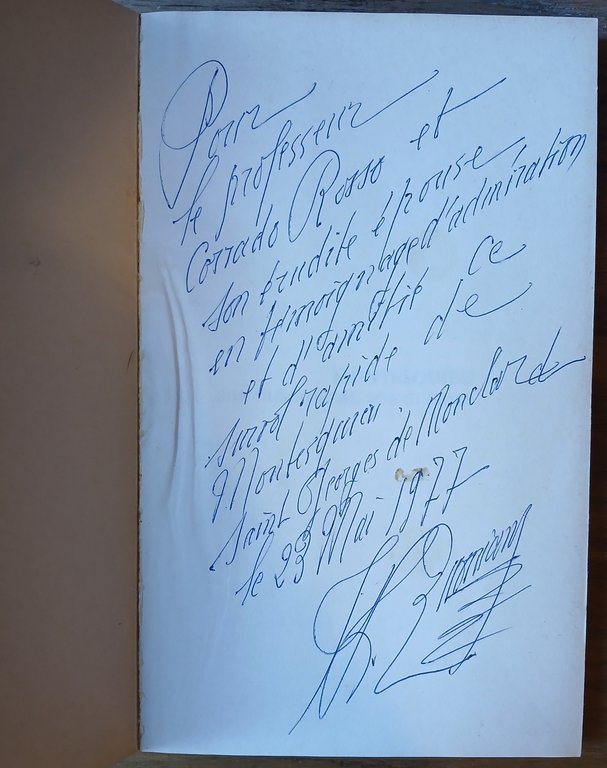 Pour
le professeur
Corrado Rosso et
son érudite épouse
en témoignage d'admiration
et d'amitié ce
survol rapide de
Montesquieu.
Saint Georges de Monclard
le 23 Mai 1977